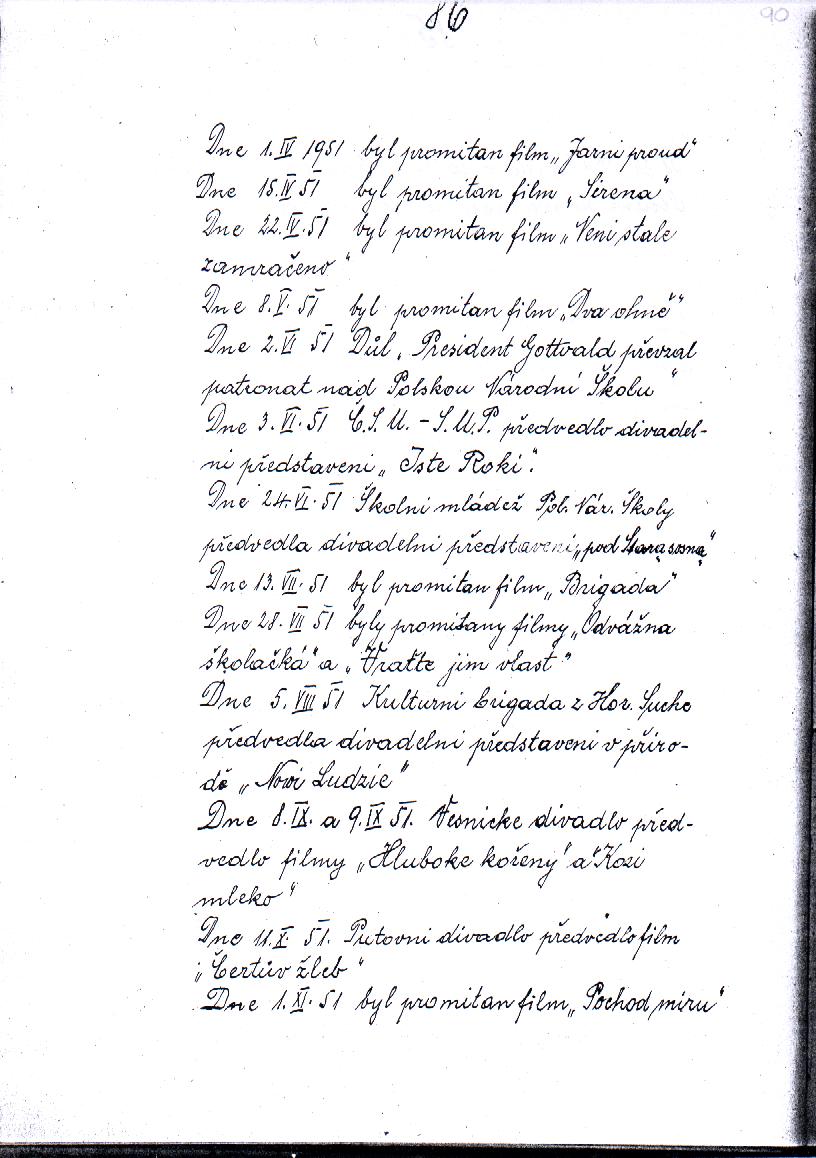 86
90
Dne 1.IV 1951 byl promitan film „Jarni proud"
Dne 15.IV 51 byl promitan film „Sirena"
Dne 22.IV.51 byl promitan film „Neni stale
zamračeno"
Dne 8.V.51 byl promitan film „Dva ohně"
Dne 2.VI 51 Důl „President Gottvald převzal
patronat nad Polskou Národni Školu"
Dne 3.VI.51 Č.S.M. - S.M.P. předvedlo divadel-
ni představeni „Iste Roki".
Dne 24.VI.51 Školni mládež Pol. Nár. Školy
předvedla divadelni představeni „pod Starą sosną"
Dne 13.VII.51 byl promitan film „Brigada"
Dne 28.VII 51 byly promitany filmy „Odvážna
školačká" a „Vraťte jim vlast"
Dne 5.VIII 51 Kulturni brigada z Hor. Suche
předvedla divadelni představeni v příro-
dě „Nowi Ludzie"
Dne 8.IX. a 9.IX 51. Vesnicke divadlo před-
vedlo filmy „Hluboke kořeny" a "Kozi
mleko"
Dne 11.X. 51. Putovni divadlo předvedlo film
„Čertův žleb"
Dne 1.XI.51 byl promitan film „Pochod miru"